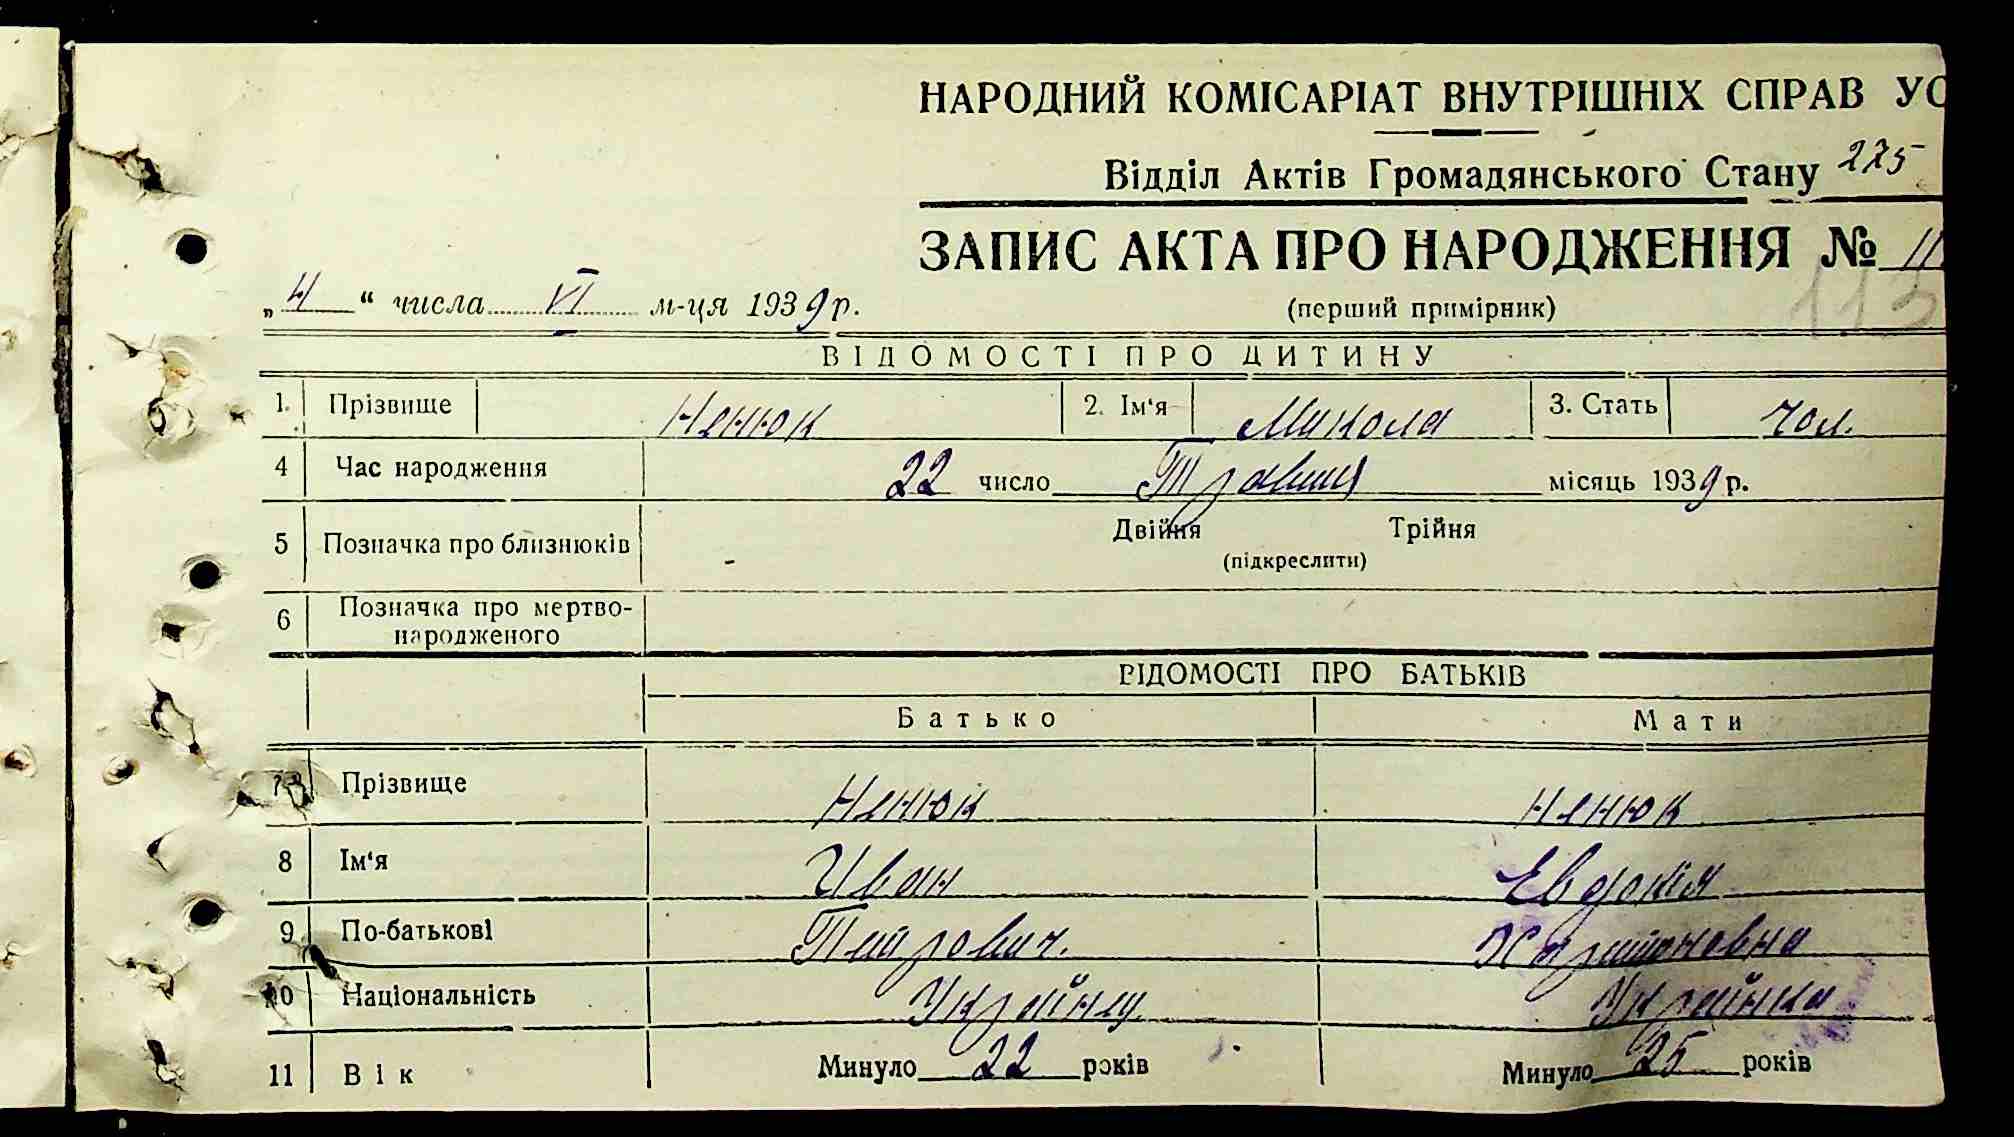 НАРОДНИЙ КОМІСАРІАТ ВНУТРІШНІХ СПРАВ УС
Відділ Актів Громадянського Стану 225
ЗАПИС АКТА ПРО НАРОДЖЕННЯ № 11
113
„4“ числа VI м-ця 1939 р.
(перший примірник)
ВІДОМОСТІ ПРО ДИТИНУ
1. Прізвище Ненюк 2. Ім'я Микола 3. Стать чол.
4 Час народження 22 число Травня місяць 1939 р.
5 Позначка про близнюків - Двійня Трійня
(підкреслити)
6 Позначка про мертво-
народженого
ВІДОМОСТІ ПРО БАТЬКІВ
Батько Мати
7 Прізвище Ненюк Ненюк
8 Ім'я Иван Евдокія
9 По-батькові Харитоновна
10 Національність Українец Українка
11 Вік Минуло 22 років Минуло 25 років